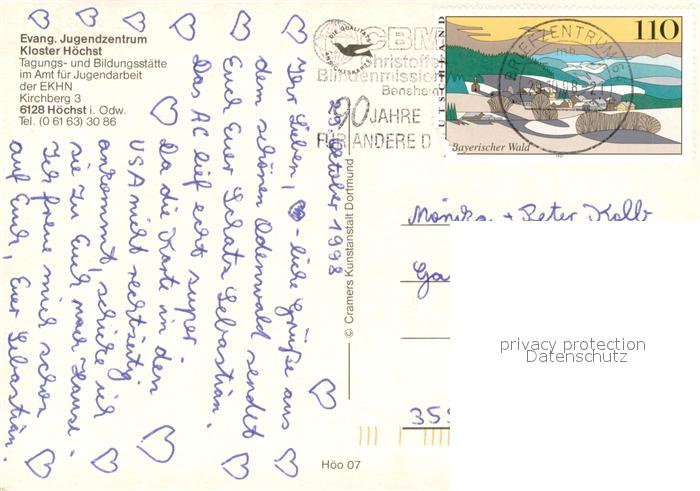 Evang. Jugendzentrum
Kloster Höchst
Tagungs- und Bildungsstätte
im Amt für Jugendarbeit
der EKHN
Kirchberg 3
6128 Höchst i. Odw.
Tel. (0 61 63) 30 86
23. Oktober 1998
Ihr Lieben, ♡-liche Grüße aus
dem schönen Odenwald sendet
Euch Euer Schatz Sebastian.
Das AC lief echt super.
Da die Karte in den
USA nicht rechtzeitig
ankommt, schicke ich
sie zu Euch nach Hause.
Ich freue mich schon
auf Euch, Euer Sebastian.
© Cramers Kunstanstalt Dortmund
Höo 07
DIE QUALITÄT
CBM
Christoffel
Blindenmission
Bensheim
90 JAHRE
FÜR ANDERE D
BRIEFZENTRUM
DEUTSCHLAND
110
Bayerischer Wald
Monika + Peter Kolb
Ga
355
privacy protection
Datenschutz